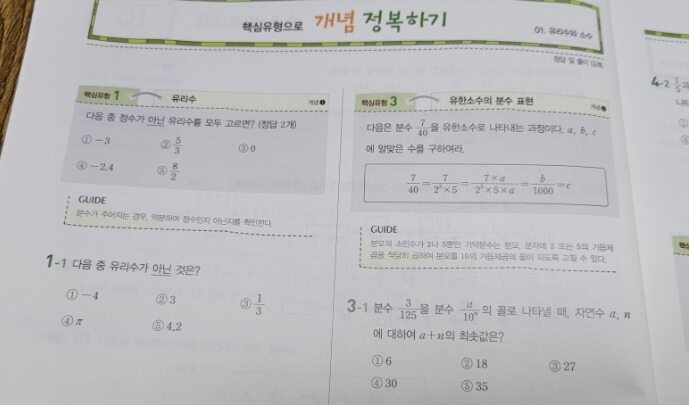 핵심유형으로 개념 정복하기
01. 유리수와 소수
정답 및 풀이
핵심유형 1 유리수 개념 ❶
다음 중 정수가 아닌 유리수를 모두 고르면? (정답 2개)
① -3 ② 5/3 ③ 0
④ -2.4 ⑤ 8/2
GUIDE
분수가 주어지는 경우, 약분하여 정수인지 아닌지를 확인한다.
1-1 다음 중 유리수가 아닌 것은?
① -4 ② 3 ③ 1/3
④ π ⑤ 4.2
핵심유형 3 유한소수의 분수 표현 개념
다음은 분수 7/40을 유한소수로 나타내는 과정이다. a, b, c
에 알맞은 수를 구하여라.
7/40 = 7/(2³×5) = (7×a)/(2³×5×a) = b/1000 = c
GUIDE
분모의 소인수가 2나 5뿐인 기약분수는 분모, 분자에 2 또는 5의 거듭제
곱을 적당히 곱하여 분모를 10의 거듭제곱의 꼴이 되도록 고칠 수 있다.
3-1 분수 3/125을 분수 a/10ⁿ의 꼴로 나타낼 때, 자연수 a, n
에 대하여 a+n의 최솟값은?
① 6 ② 18 ③ 27
④ 30 ⑤ 35
4-2